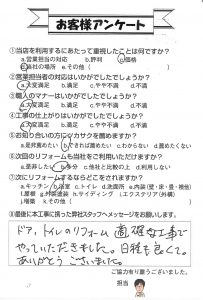 お客様アンケート
①当店を利用するにあたって重視したことは何ですか?
a.営業担当者の対応 b.評判 c.価格
d.会社の場所 e.その他(　　)
②営業担当者の対応はいかがでしたでしょうか?
a.大変満足 b.満足 c.やや不満 d.不満
③職人のマナーはいかがでしたでしょうか?
a.大変満足 b.満足 c.やや不満 d.不満
④工事の仕上がりはいかがでしたでしょうか?
a.大変満足 b.満足 c.やや不満 d.不満
⑤お知り合いの方にイカサクを薦めますか?
a.是非薦めたい b.できれば薦めたい c.わからない d.薦めたくない
⑥次回のリフォームも当社をご利用いただけますか?
a.是非したい b.多分 c.他社と比較の上 d.利用しない
⑦次にリフォームするならどこをされますか?
a.キッチン b.浴室 c.トイレ d.洗面所 e.内装(壁・床・畳・襖他)
f.屋根 g.外壁塗装 h.サイディング i.エクステリア(外構)
j.増築 x.その他(　　)
⑧最後に本工事に携った弊社スタッフへメッセージをお願いします。
ドア、トイレのリフォーム 適確な工事で
やっていただきました。日程も良くて。
ありがとうございました。
ご協力有り難うございました
担当